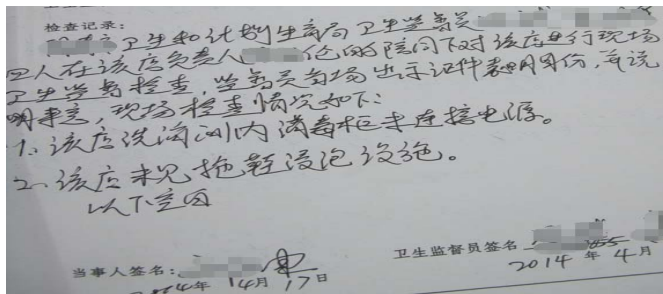 检查记录:
卫生和计划生育局卫生监督员
四人在该店负责人 伦的陪同下对该店进行现场
卫生监督检查，监督员当场出示证件表明身份，并说
明来意，现场检查情况如下:
1、该店洗消间内消毒柜未连接电源。
2、该店未见拖鞋浸泡设施。
以下空白
当事人签名: 卫生监督员签名
年 4月17日 2014 年 4 月